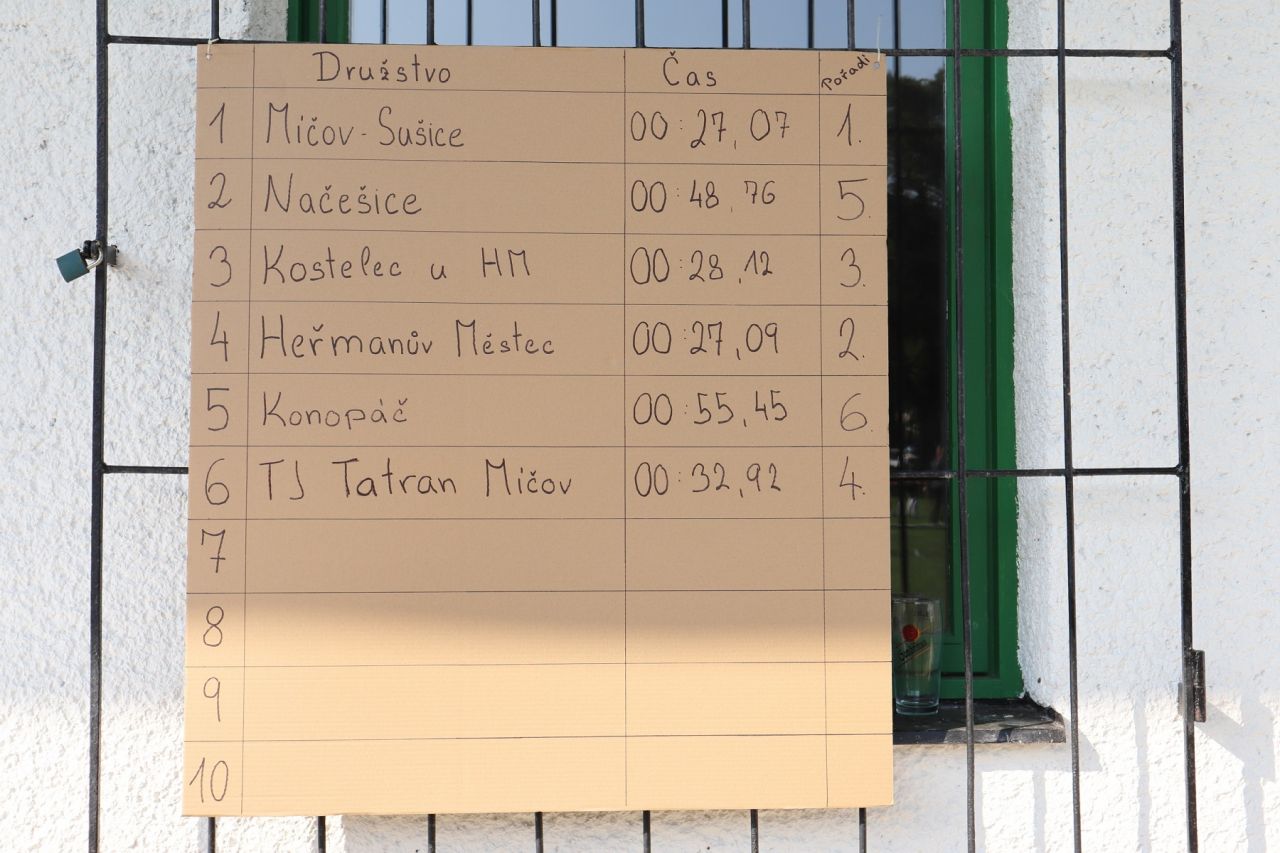 Družstvo Čas Pořadí
1 Mičov-Sušice 00:27,07 1.
2 Načešice 00:48,76 5.
3 Kostelec u HM 00:28,12 3.
4 Heřmanův Městec 00:27,09 2.
5 Konopáč 00:55,45 6.
6 TJ Tatran Mičov 00:32,92 4.
7
8
9
10